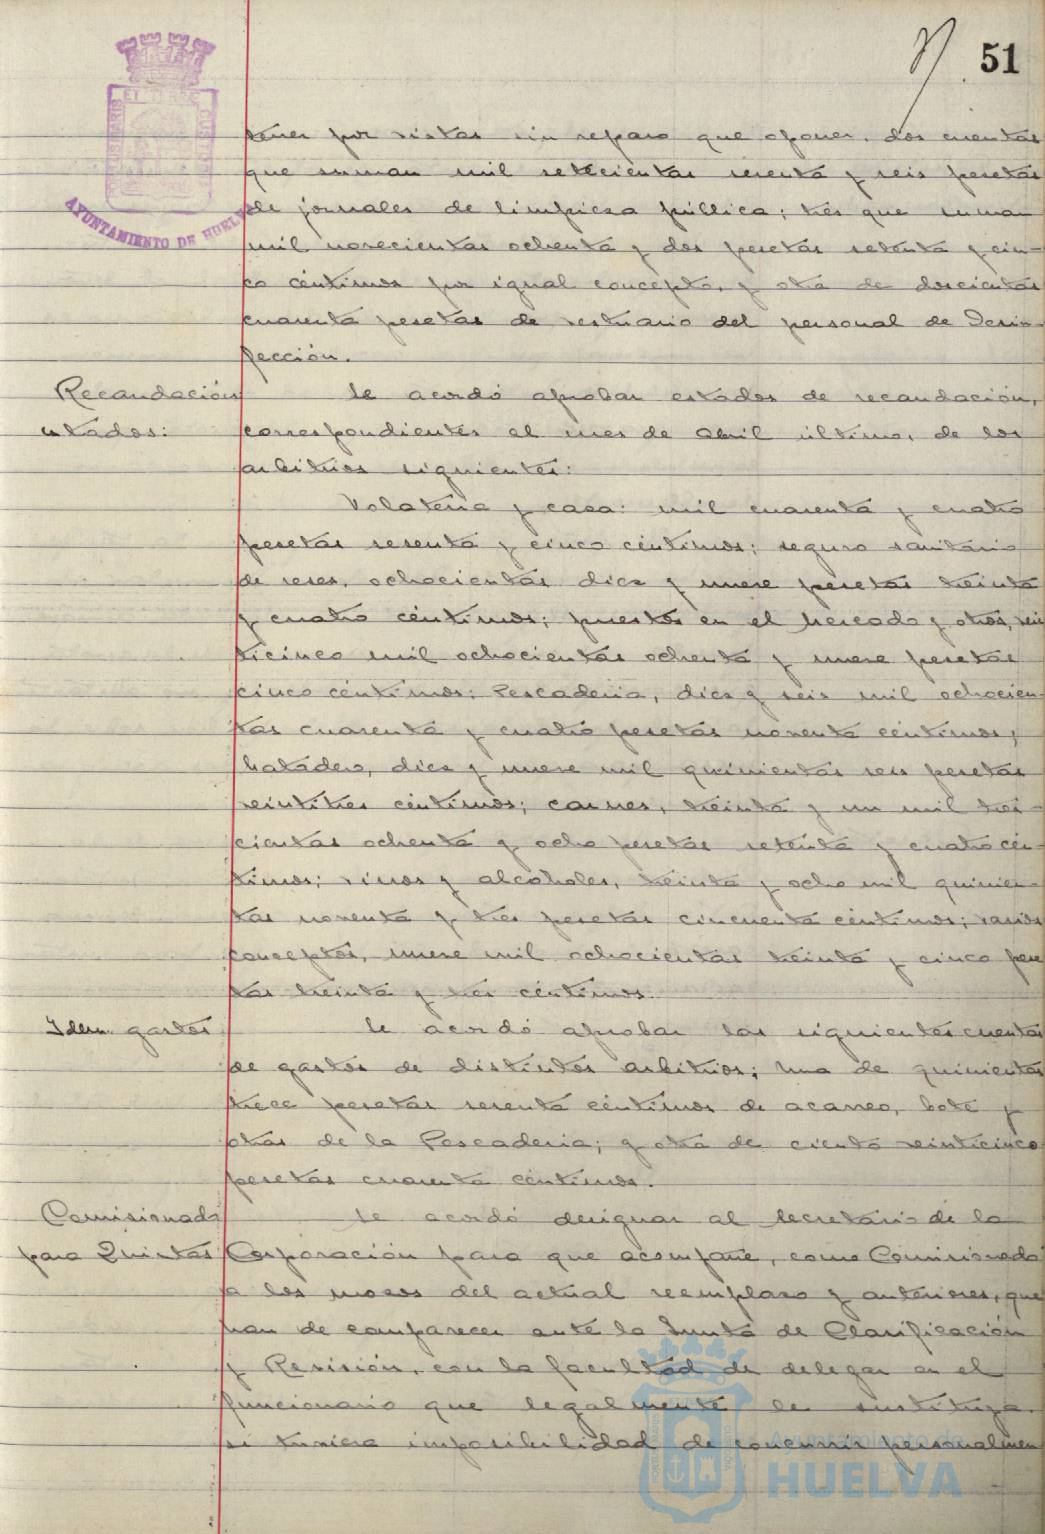 51
AYUNTAMIENTO DE HUELVA
tener por vistas sin reparo que oponer, dos cuentas
que suman mil setecientas sesenta y seis pesetas
de jornales de limpieza pública; tres que suman
mil novecientas ochenta y dos pesetas setenta y cin-
co céntimos por igual concepto, y otra de doscientas
cuarenta pesetas de vestuario del personal de Desin-
fección.
Recaudación Se acordó aprobar estados de recaudación,
estados: correspondientes al mes de Abril último, de los
arbitrios siguientes:
Volatería y caza: mil cuarenta y cuatro
pesetas sesenta y cinco céntimos; seguro sanitario
de reses, ochocientas diez y nueve pesetas treinta
y cuatro céntimos; puestos en el Mercado y otros, vein
ticinco mil ochocientas ochenta y nueve pesetas
cinco céntimos; Pescadería, diez y seis mil ochocien-
tas cuarenta y cuatro pesetas noventa céntimos;
Matadero, diez y nueve mil quinientas seis pesetas
veintitres céntimos; carnes, treinta y un mil tres-
cientas ochenta y ocho pesetas setenta y cuatro cén-
timos; vinos y alcoholes, treinta y ocho mil quinien-
tas noventa y tres pesetas cincuenta céntimos; varios
conceptos, nueve mil ochocientas treinta y cinco pese
tas treinta y tres céntimos.
Idem. gastos Se acordó aprobar las siguientes cuentas
de gastos de distintos arbitrios; una de quinientas
trece pesetas sesenta céntimos de acarreo, bote y
otras de la Pescadería; y otra de ciento veinticinco
pesetas cuarenta céntimos.
Comisionado Se acordó designar al Secretario de la
para Quintas Corporación para que acompañe, como Comisionado
a los mozos del actual reemplazo y anteriores, que
han de comparecer ante la Junta de Clasificación
y Revisión, con la facultad de delegar en el
funcionario que legalmente le sustituya
si tuviera imposibilidad de concurrir personalmen
Ayuntamiento de
HUELVA